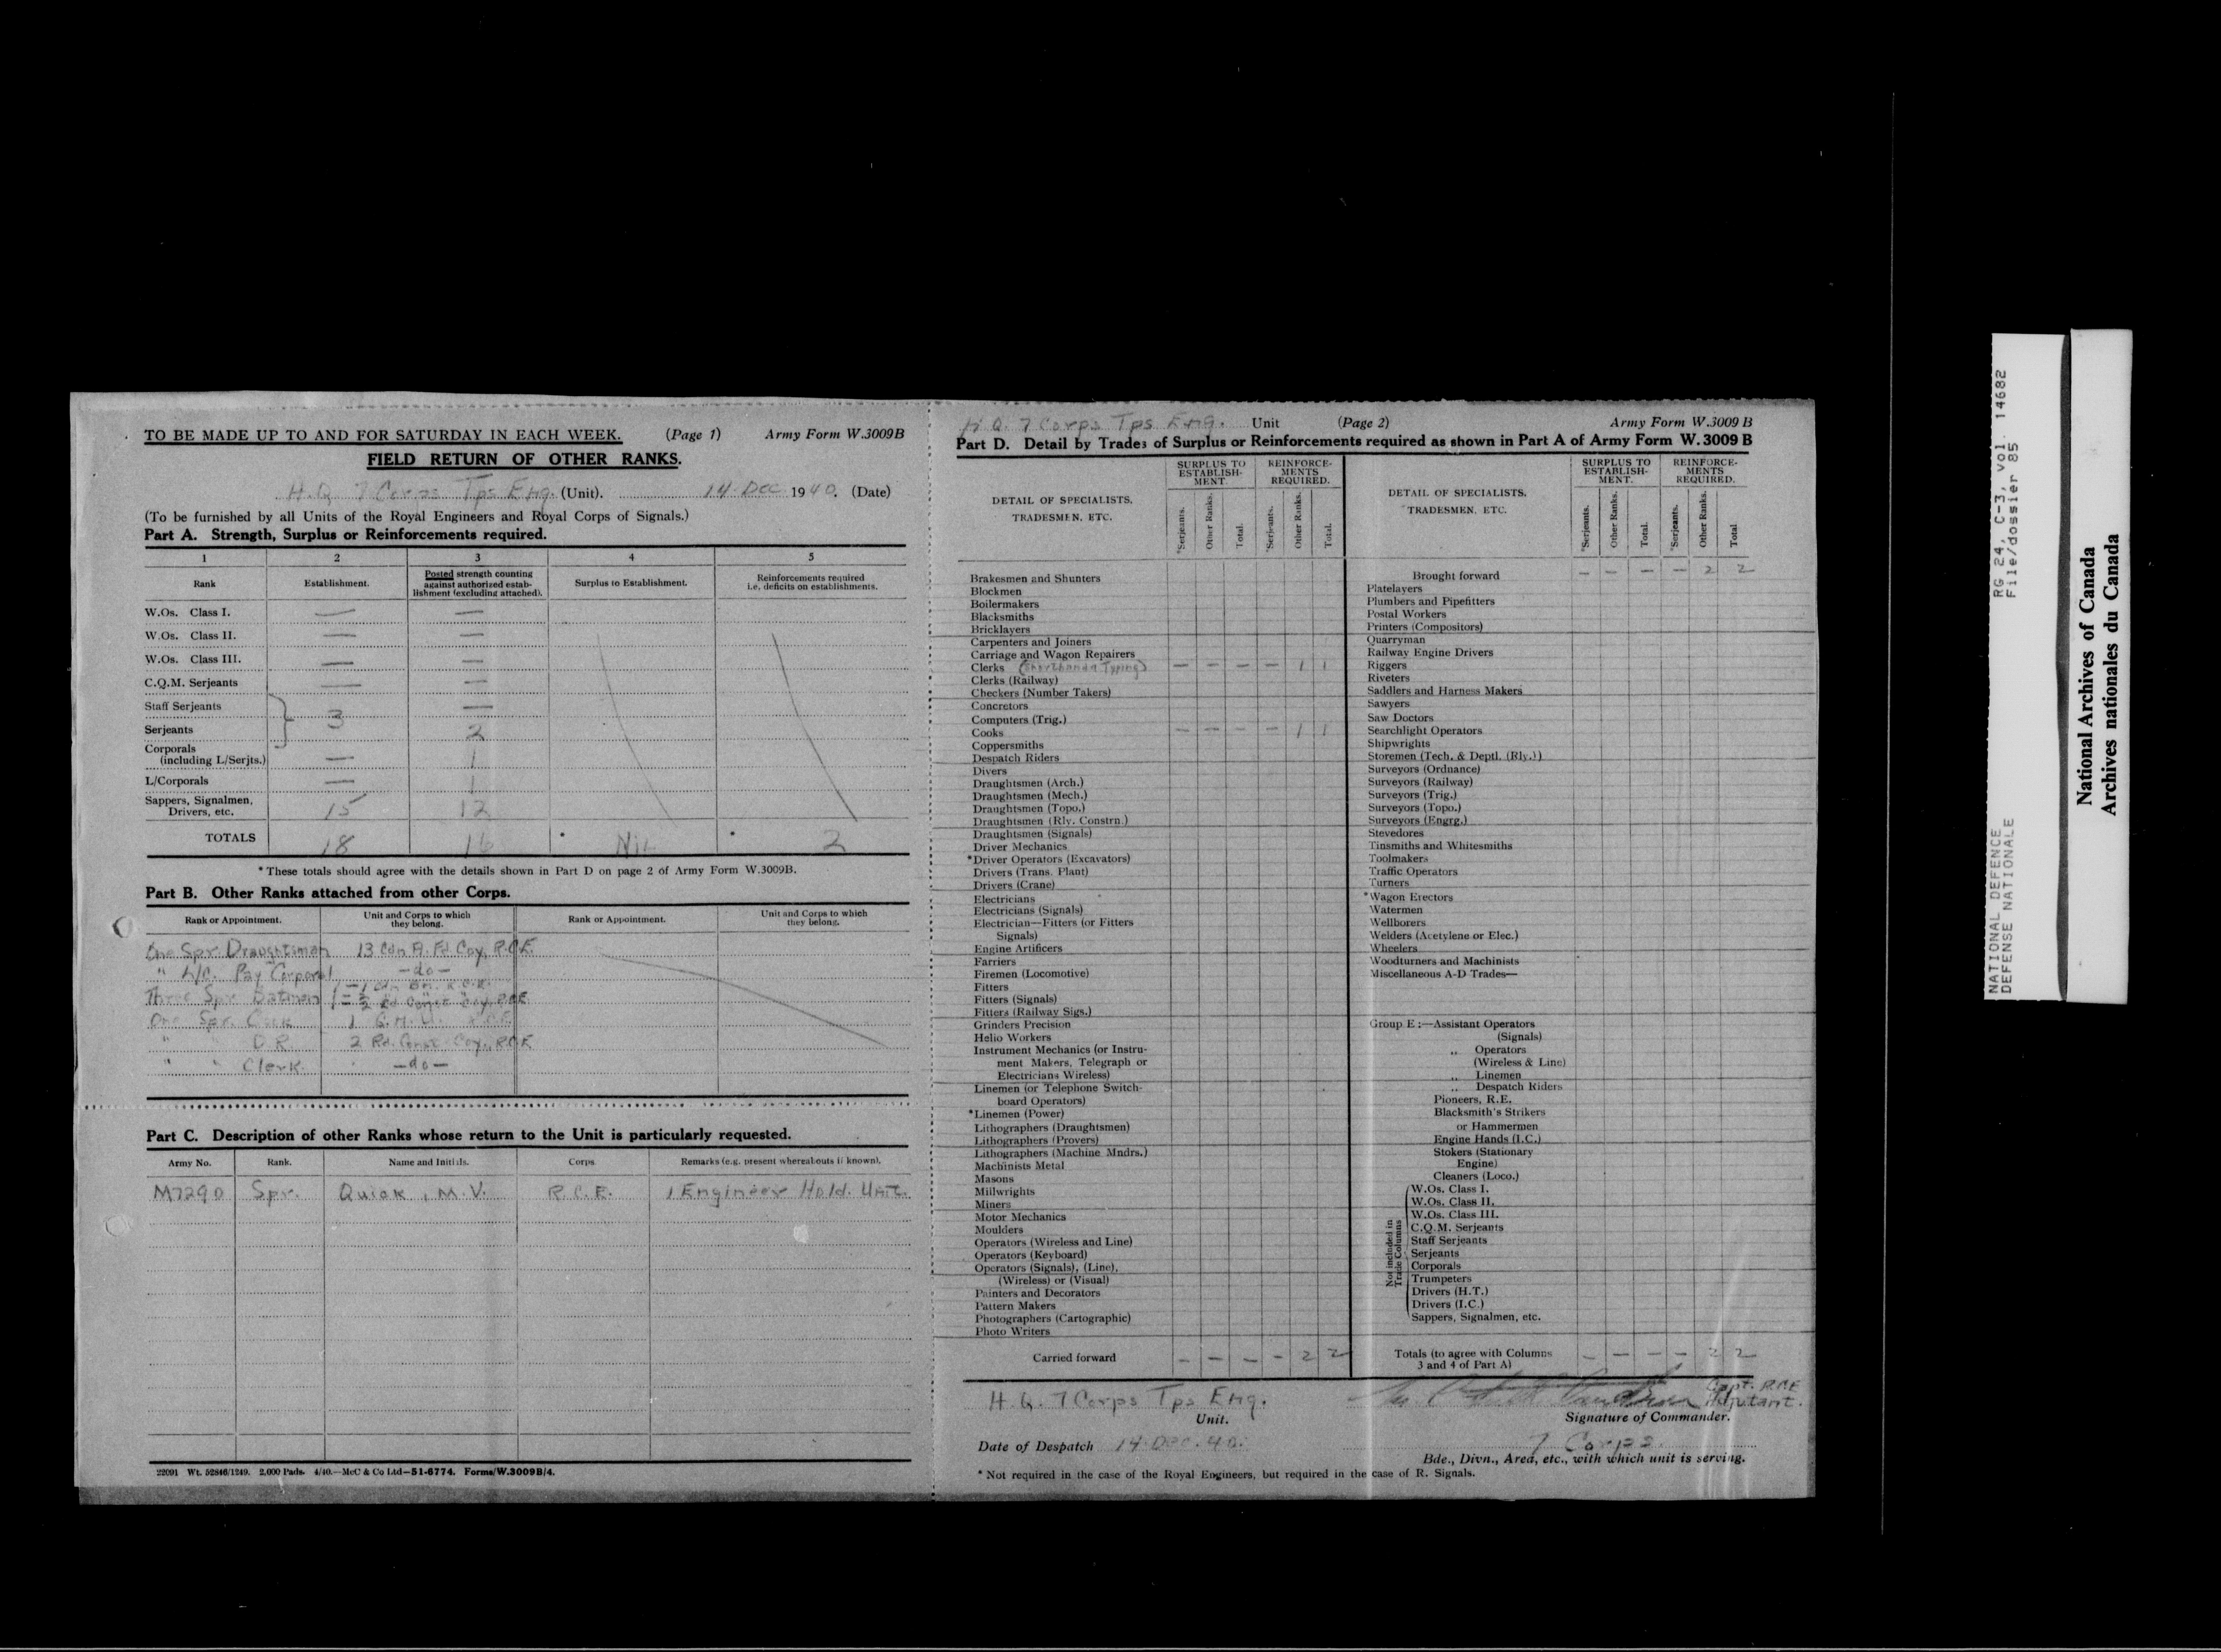 TO BE MADE UP TO AND FOR SATURDAY IN EACH WEEK. (Page 1) Army Form W.3009B
FIELD RETURN OF OTHER RANKS.
H.Q. 7 Corps Tps Eng. (Unit). 14 Dec 1940. (Date)
(To be furnished by all Units of the Royal Engineers and Royal Corps of Signals.)
Part A. Strength, Surplus or Reinforcements required.
1 2 3 4 5
Rank Establishment. Posted strength counting against authorized establishment (excluding attached). Surplus to Establishment. Reinforcements required i.e. deficits on establishments.
W.Os. Class I. — —
W.Os. Class II. — —
W.Os. Class III. — —
C.Q.M. Serjeants — —
Staff Serjeants —
Serjeants 3 2
Corporals
(including L/Serjts.) — 1
L/Corporals — 1
Sappers, Signalmen,
Drivers, etc. 15 12
TOTALS 18 16 * Nil * 2
* These totals should agree with the details shown in Part D on page 2 of Army Form W.3009B.
Part B. Other Ranks attached from other Corps.
Rank or Appointment. Unit and Corps to which they belong. Rank or Appointment. Unit and Corps to which they belong.
One Spr Draughtsman 13 Cdn A. Fd. Coy, R.C.E.
" L/C. Pay Corporal —do—
Three Spr Batman 1 - 1 Cdn Bn. R.C.E.
2 Rd Const Coy, RCE
One Spr. Cook 1 R.C.E.
" " D.R. 2 Rd. Const Coy., RCE
" " Clerk —do—
Part C. Description of other Ranks whose return to the Unit is particularly requested.
Army No. Rank. Name and Initials. Corps. Remarks (e.g. present whereabouts if known).
M7290 Spr. Quick, M.V. R.C.E. 1 Engineer Hold. Unit.
22091 Wt. 52846/1249. 2,000 Pads. 4/40.—McC & Co Ltd—51-6774. Forms/W.3009B/4.
H.Q. 7 Corps Tps Eng. Unit (Page 2) Army Form W.3009 B
Part D. Detail by Trades of Surplus or Reinforcements required as shown in Part A of Army Form W.3009 B
DETAIL OF SPECIALISTS. TRADESMEN. ETC.
SURPLUS TO ESTABLISHMENT. REINFORCEMENTS REQUIRED.
*Serjeants. Other Ranks. Total. *Serjeants. Other Ranks. Total.
Brakesmen and Shunters
Blockmen
Boilermakers
Blacksmiths
Bricklayers
Carpenters and Joiners
Carriage and Wagon Repairers
Clerks (Shorthand & Typing) — — — — 1 1
Clerks (Railway)
Checkers (Number Takers)
Concretors
Computers (Trig.)
Cooks — — — — 1 1
Coppersmiths
Despatch Riders
Divers
Draughtsmen (Arch.)
Draughtsmen (Mech.)
Draughtsmen (Topo.)
Draughtsmen (Rly. Constrn.)
Draughtsmen (Signals)
Driver Mechanics
*Driver Operators (Excavators)
Drivers (Trans. Plant)
Drivers (Crane)
Electricians
Electricians (Signals)
Electrician—Fitters (or Fitters
Signals)
Engine Artificers
Farriers
Firemen (Locomotive)
Fitters
Fitters (Signals)
Fitters (Railway Sigs.)
Grinders Precision
Helio Workers
Instrument Mechanics (or Instru-
ment Makers, Telegraph or
Electricians Wireless)
Linemen (or Telephone Switch-
board Operators)
*Linemen (Power)
Lithographers (Draughtsmen)
Lithographers (Provers)
Lithographers (Machine Mndrs.)
Machinists Metal
Masons
Millwrights
Miners
Motor Mechanics
Moulders
Operators (Wireless and Line)
Operators (Keyboard)
Operators (Signals), (Line),
(Wireless) or (Visual)
Painters and Decorators
Pattern Makers
Photographers (Cartographic)
Photo Writers
Carried forward — — — — 2 2
DETAIL OF SPECIALISTS. TRADESMEN. ETC.
SURPLUS TO ESTABLISHMENT. REINFORCEMENTS REQUIRED.
*Serjeants. Other Ranks. Total. *Serjeants. Other Ranks. Total
Brought forward — — — — 2 2
Platelayers
Plumbers and Pipefitters
Postal Workers
Printers (Compositors)
Quarryman
Railway Engine Drivers
Riggers
Riveters
Saddlers and Harness Makers
Sawyers
Saw Doctors
Searchlight Operators
Shipwrights
Storemen (Tech. & Deptl. (Rly.))
Surveyors (Ordnance)
Surveyors (Railway)
Surveyors (Trig.)
Surveyors (Topo.)
Surveyors (Engrg.)
Stevedores
Tinsmiths and Whitesmiths
Toolmakers
Traffic Operators
Turners
*Wagon Erectors
Watermen
Wellborers
Welders (Acetylene or Elec.)
Wheelers
Woodturners and Machinists
Miscellaneous A-D Trades—
Group E :—Assistant Operators
(Signals)
„ Operators
(Wireless & Line)
„ Linemen
„ Despatch Riders
Pioneers, R.E.
Blacksmith's Strikers
or Hammermen
Engine Hands (I.C.)
Stokers (Stationary
Engine)
Cleaners (Loco.)
Not included in Trade Columns
W.Os. Class I.
W.Os. Class II.
W.Os. Class III.
C.Q.M. Serjeants
Staff Serjeants
Serjeants
Corporals
Trumpeters
Drivers (H.T.)
Drivers (I.C.)
Sappers, Signalmen, etc.
Totals (to agree with Columns
3 and 4 of Part A) — — — — 2 2
H.Q. 7 Corps Tps Eng. Capt. RCE
Adjutant.
Unit. Signature of Commander.
Date of Despatch 14 Dec. 40. 7 Corps.
Bde., Divn., Area, etc., with which unit is serving.
* Not required in the case of the Royal Engineers, but required in the case of R. Signals.
NATIONAL DEFENCE RG 24, C-3, vol. 14682
DEFENSE NATIONALE File/dossier 85
National Archives of Canada
Archives nationales du Canada